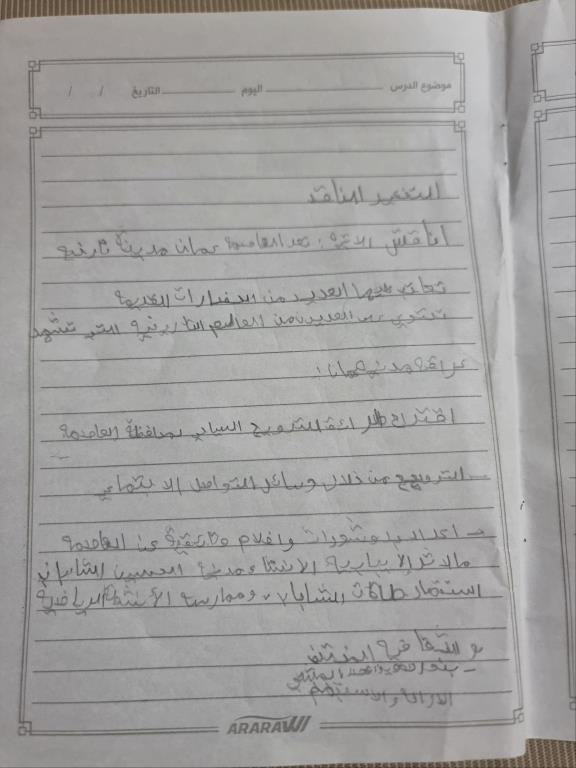 موضوع الدرس اليوم التاريخ / /
التفكير الناقد
أناقش الآتية: تعد العاصمة عمان مدينة تاريخية
تعاقب عليها العديد من الحضارات القديمة
تحتوي على العديد من المعالم التاريخية التي تشهد
عراقة مدينة عمان:
اقتراح طرائق للترويج السياحي بمحافظة العاصمة
- الترويج من خلال وسائل التواصل الاجتماعي
- اعداد منشورات وافلام وثائقية عن العاصمة
ما الاثار الايجابية الانشاء مدينة الحسين للشباب
استثمار طاقات الشباب وممارسة الأنشطة الرياضية
و الثقافية المختلفة
ARARAWI